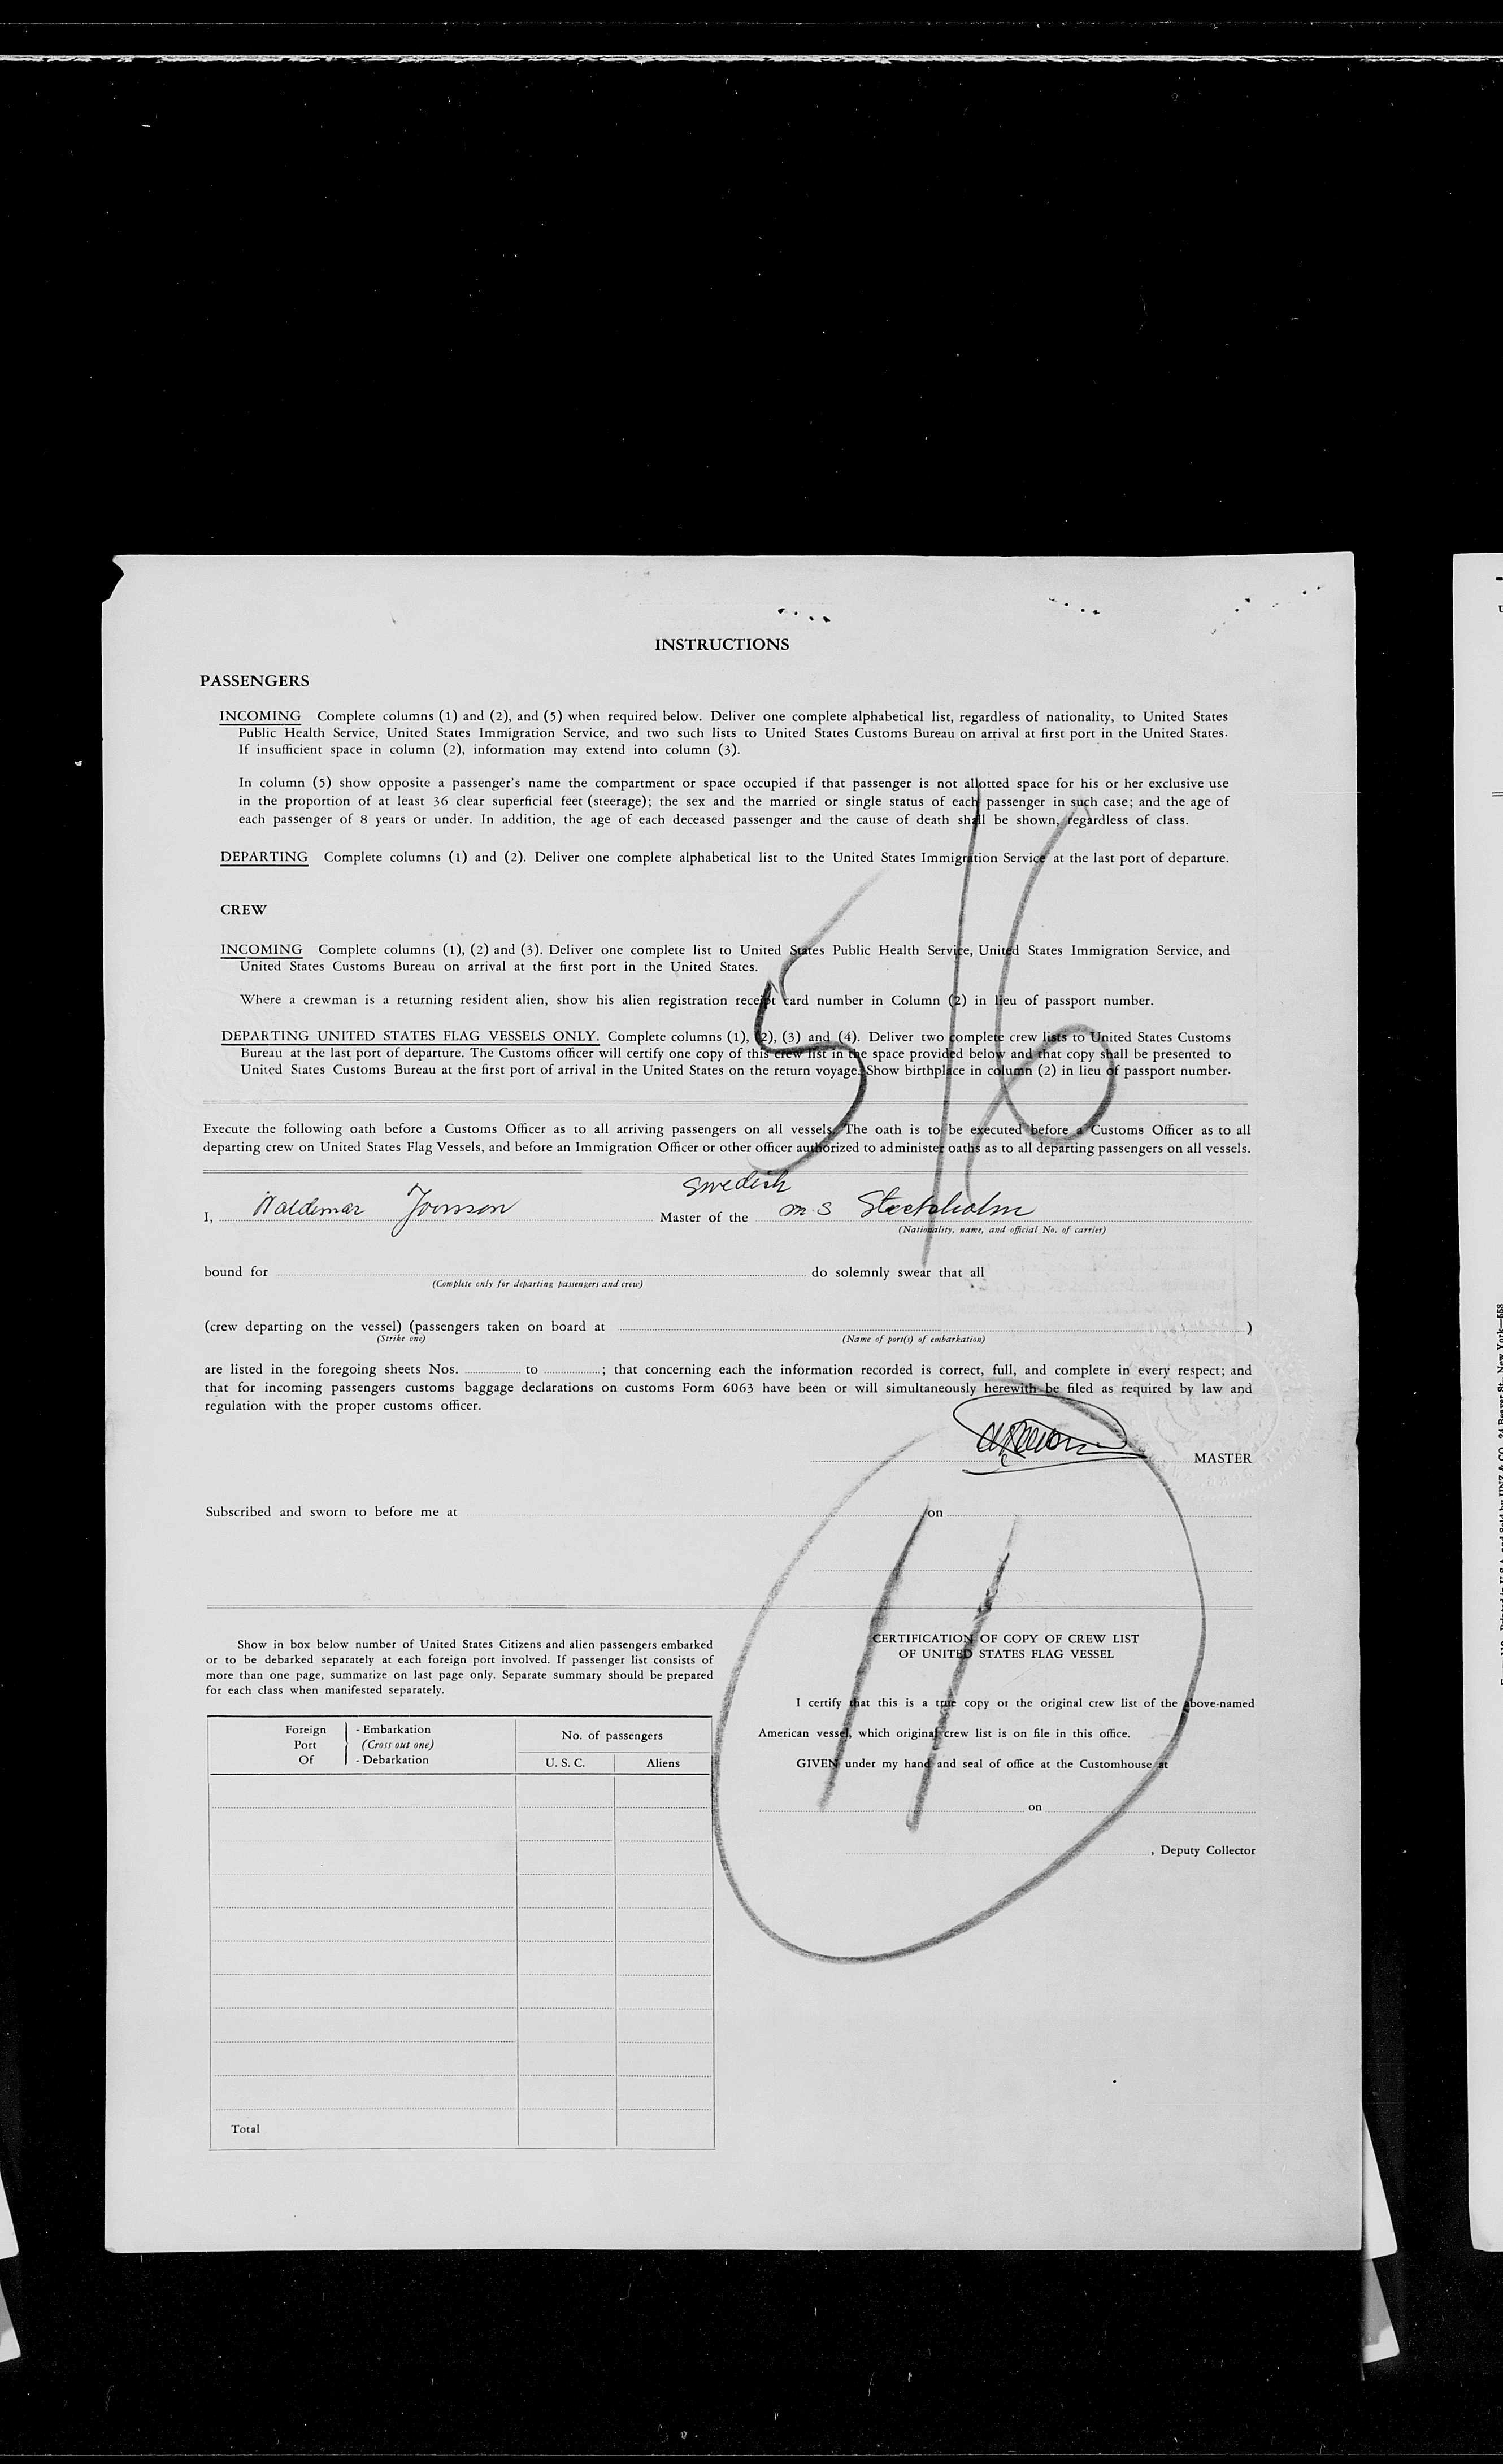 INSTRUCTIONS
PASSENGERS
INCOMING Complete columns (1) and (2), and (5) when required below. Deliver one complete alphabetical list, regardless of nationality, to United States
Public Health Service, United States Immigration Service, and two such lists to United States Customs Bureau on arrival at first port in the United States.
If insufficient space in column (2), information may extend into column (3).
In column (5) show opposite a passenger's name the compartment or space occupied if that passenger is not allotted space for his or her exclusive use
in the proportion of at least 36 clear superficial feet (steerage); the sex and the married or single status of each passenger in such case; and the age of
each passenger of 8 years or under. In addition, the age of each deceased passenger and the cause of death shall be shown, regardless of class.
DEPARTING Complete columns (1) and (2). Deliver one complete alphabetical list to the United States Immigration Service at the last port of departure.
CREW
INCOMING Complete columns (1), (2) and (3). Deliver one complete list to United States Public Health Service, United States Immigration Service, and
United States Customs Bureau on arrival at the first port in the United States.
Where a crewman is a returning resident alien, show his alien registration receipt card number in Column (2) in lieu of passport number.
DEPARTING UNITED STATES FLAG VESSELS ONLY. Complete columns (1), (2), (3) and (4). Deliver two complete crew lists to United States Customs
Bureau at the last port of departure. The Customs officer will certify one copy of this crew list in the space provided below and that copy shall be presented to
United States Customs Bureau at the first port of arrival in the United States on the return voyage. Show birthplace in column (2) in lieu of passport number.
5/6
Execute the following oath before a Customs Officer as to all arriving passengers on all vessels. The oath is to be executed before a Customs Officer as to all
departing crew on United States Flag Vessels, and before an Immigration Officer or other officer authorized to administer oaths as to all departing passengers on all vessels.
Swedish
I, Waldemar Jonsson Master of the m.s Stockholm
(Nationality, name, and official No. of carrier)
bound for do solemnly swear that all
(Complete only for departing passengers and crew)
(crew departing on the vessel) (passengers taken on board at )
(Strike one) (Name of port(s) of embarkation)
are listed in the foregoing sheets Nos. to ; that concerning each the information recorded is correct, full, and complete in every respect; and
that for incoming passengers customs baggage declarations on customs Form 6063 have been or will simultaneously herewith be filed as required by law and
regulation with the proper customs officer.
MASTER
Subscribed and sworn to before me at on
11
Show in box below number of United States Citizens and alien passengers embarked
or to be debarked separately at each foreign port involved. If passenger list consists of
more than one page, summarize on last page only. Separate summary should be prepared
for each class when manifested separately.
Foreign Port Of - Embarkation (Cross out one) - Debarkation
No. of passengers
U. S. C. Aliens
Total
CERTIFICATION OF COPY OF CREW LIST
OF UNITED STATES FLAG VESSEL
I certify that this is a true copy of the original crew list of the above-named
American vessel, which original crew list is on file in this office.
GIVEN under my hand and seal of office at the Customhouse at
on
, Deputy Collector